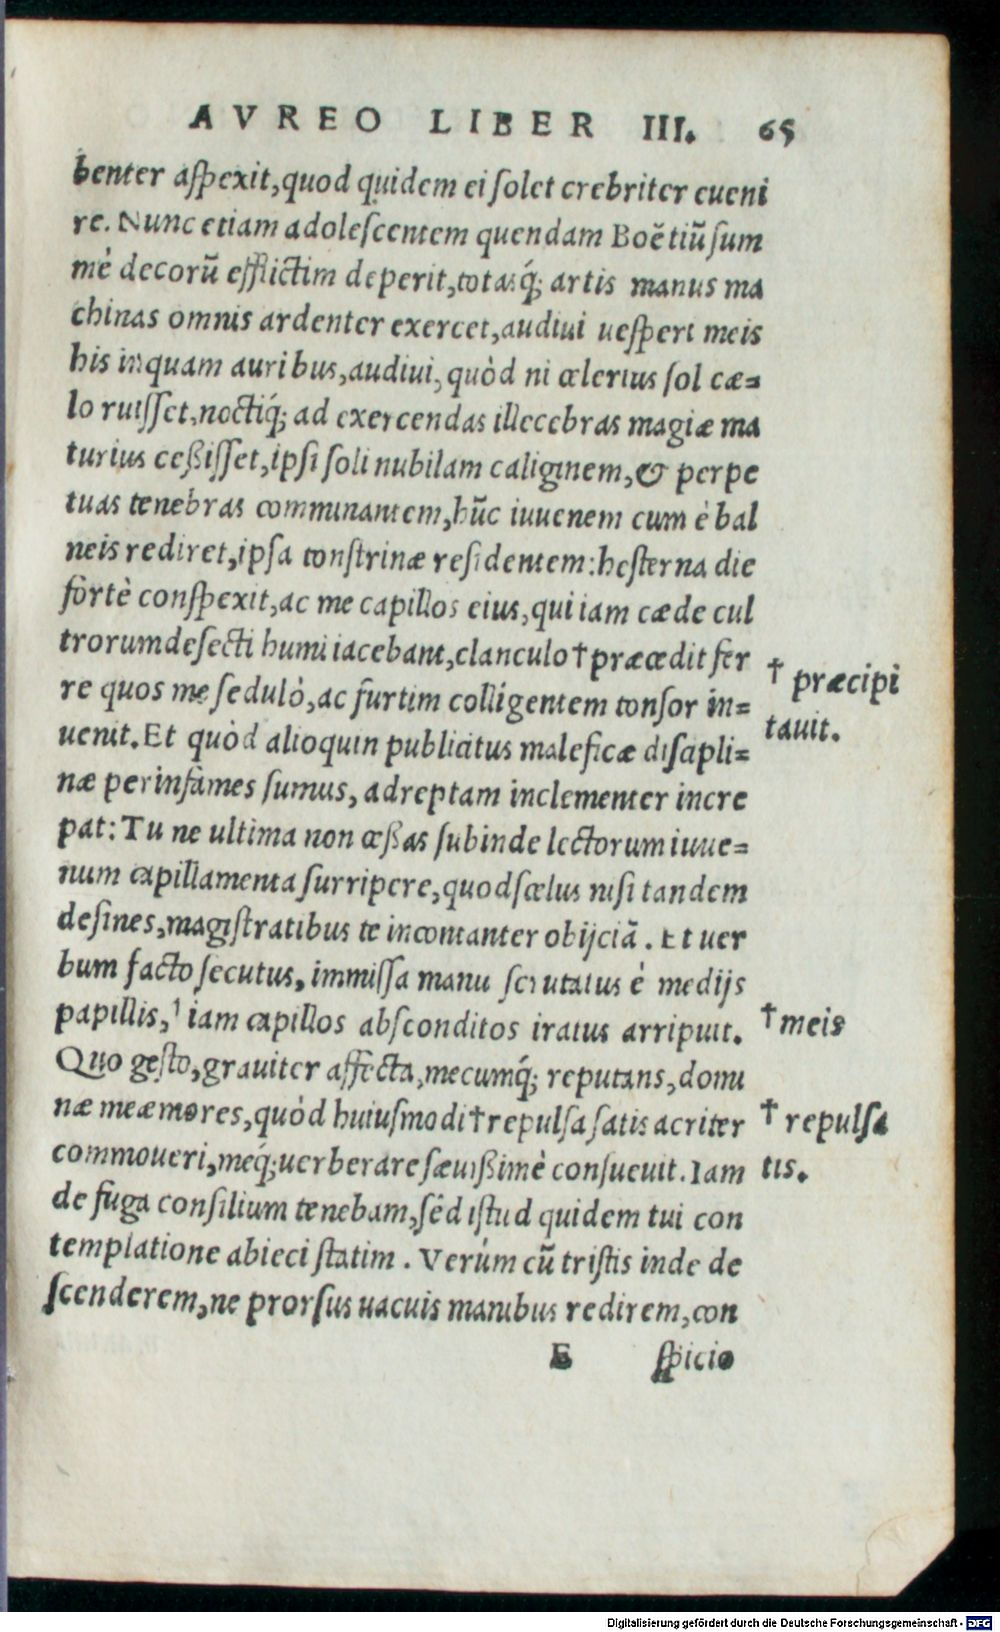 AVREO LIBER III. 65
benter aſpexit, quod quidem ei ſolet crebriter eueni
re. Nunc etiam adoleſcentem quendam Boëtiũ ſum
mè decorũ efflictim deperit, totasq́; artis manus ma
chinas omnis ardenter exercet, audiui ueſperi meis
his inquam auribus, audiui, quòd ni celerius ſol cæ=
lo ruiſſet, noctiq́; ad exercendas illecebras magiæ ma
turius ceßiſſet, ipſi ſoli nubilam caliginem, & perpe
tuas tenebras comminantem, hũc iuuenem cum è bal
neis rediret, ipſa tonſtrinæ reſidentem: heſterna die
fortè conſpexit, ac me capillos eius, qui iam cæde cul
trorum deſecti humi iacebant, clanculo † præcedit fer
re quos me ſedulò, ac furtim colligentem tonſor in=
uenit. Et quòd alioquin publicitus maleficæ diſcipli=
næ perinfámes ſumus, adreptam inclementer incre
pat: Tu ne ultima non ceßas ſubinde lectorum iuue=
num capillamenta ſurripere, quod ſcelus niſi tandem
deſines, magiſtratibus te incontanter obijciã. Et uer
bum facto ſecutus, immiſſa manu ſcrutatus è medijs
papillis, † iam capillos abſconditos iratus arripuit.
Quo geſto, grauiter affecta, mecumq́; reputans, domi
næ meæ mores, quòd huiuſmodi † repulſa ſatis acriter
commoueri, meq́; uerberare ſæuißimè conſueuit. Iam
de fuga conſilium tenebam, ſed iſtud quidem tui con
templatione abieci ſtatim. Verùm cũ triſtis inde de
ſcenderem, ne prorſus uacuis manibus redirem, con
E ſpicio
† præcipi
tauit.
† meis
† repulſa
tis.
Digitalisierung gefördert durch die Deutsche Forschungsgemeinschaft - DFG